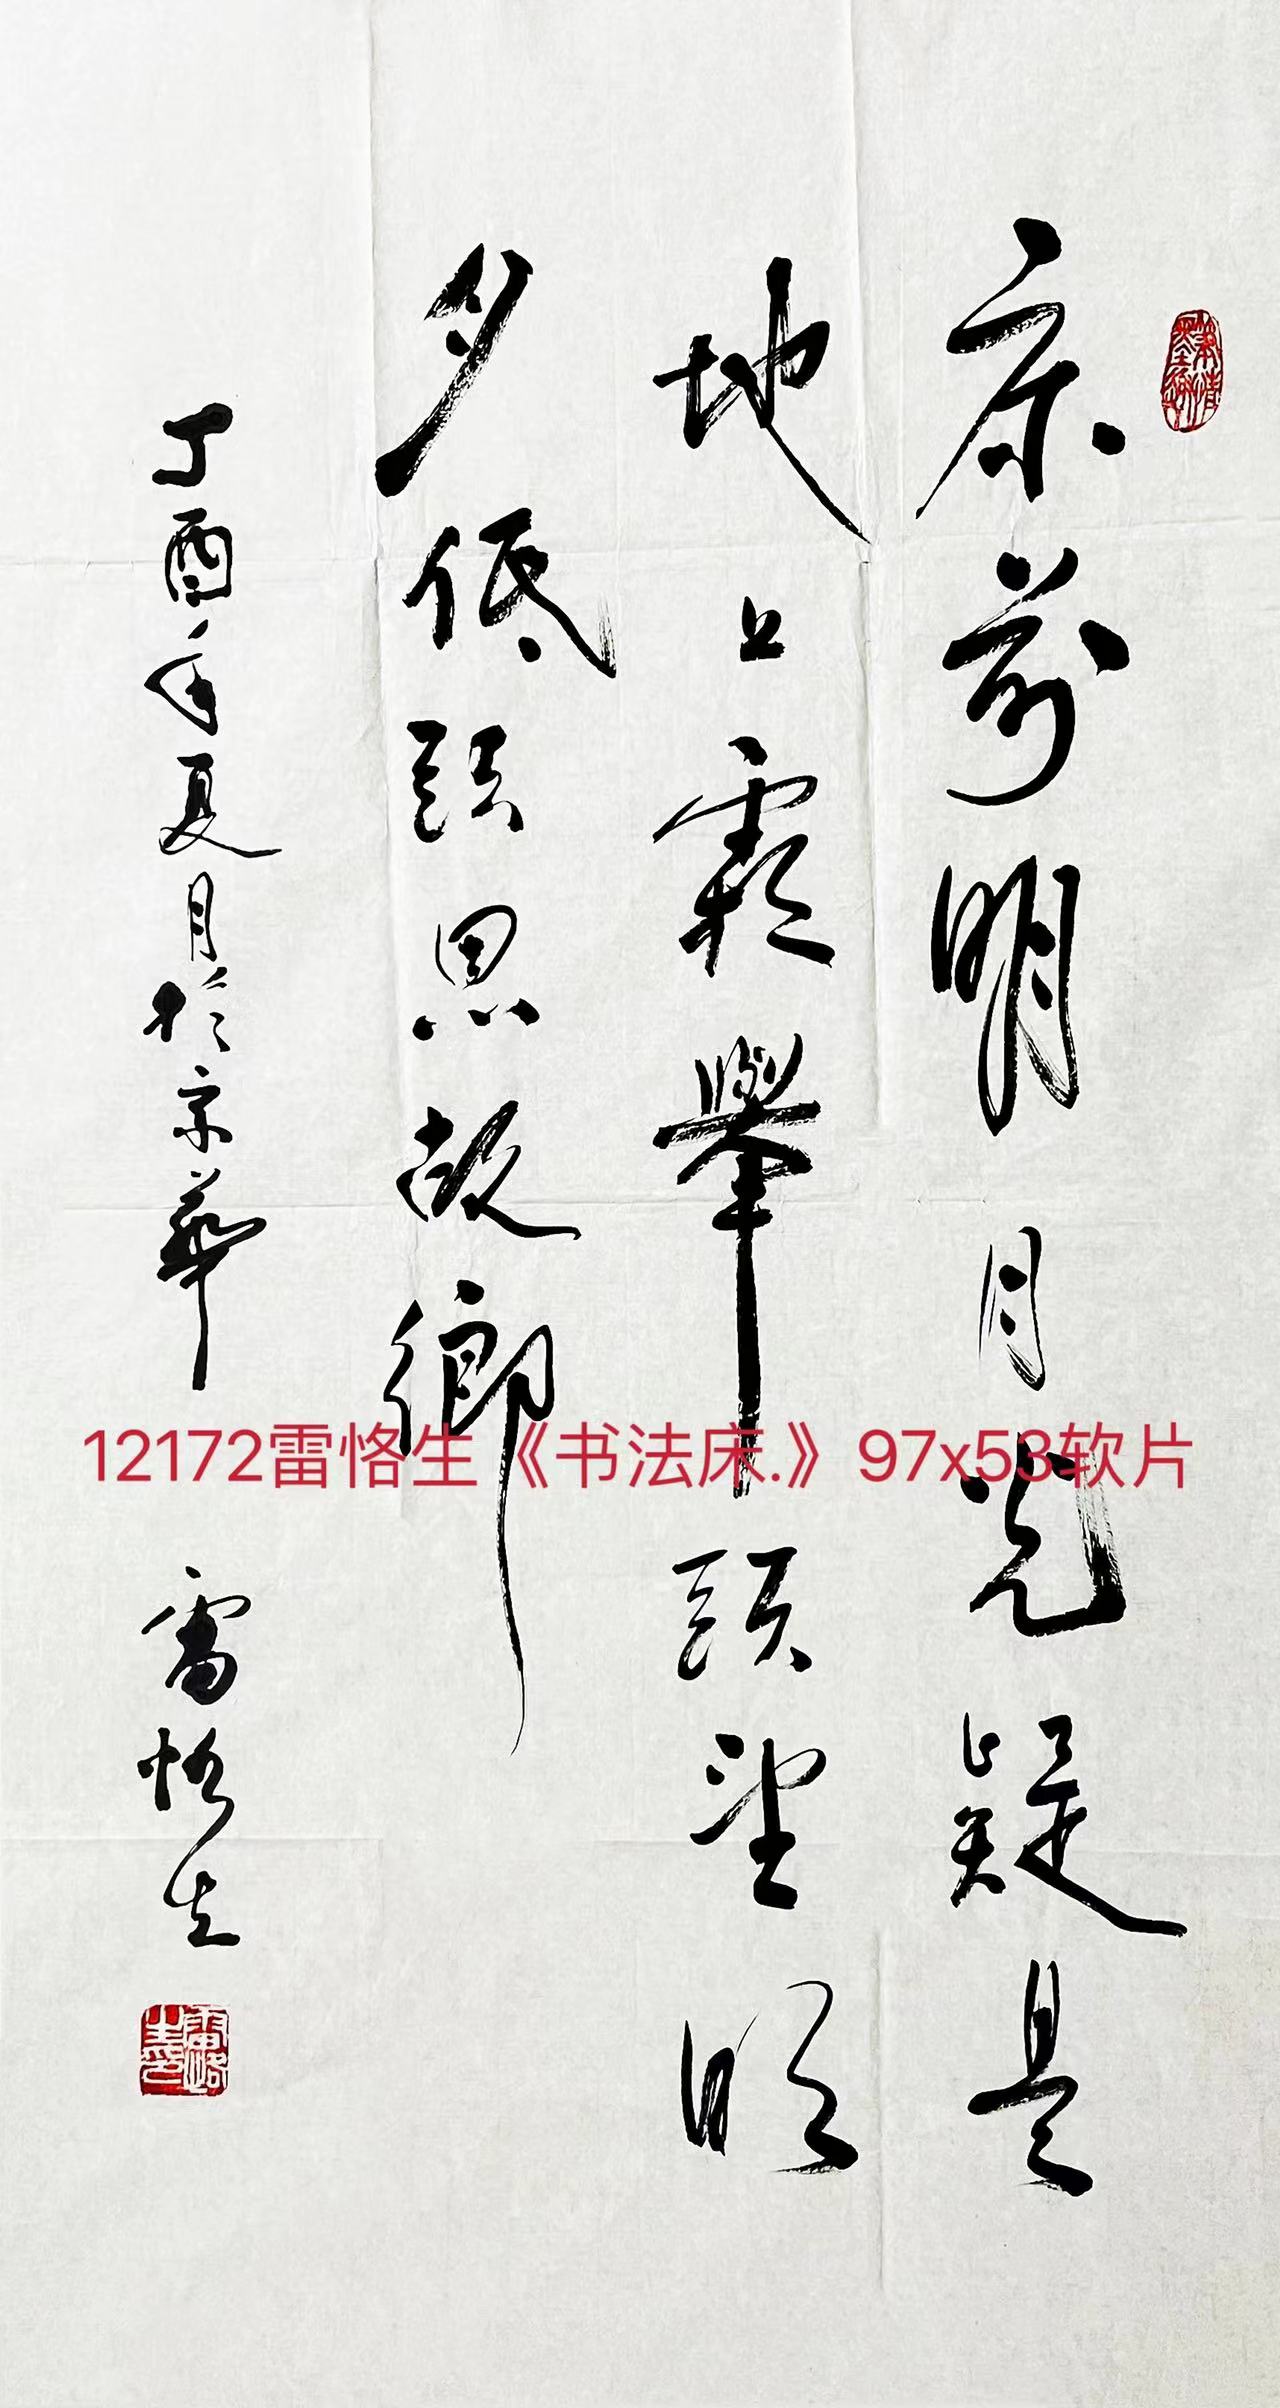 床前明月光疑是
地上霜舉頭望明
月低頭思故鄉
丁酉年夏月於京華 雷恪生
雷恪生印
12172雷恪生《书法床.》97x53软片